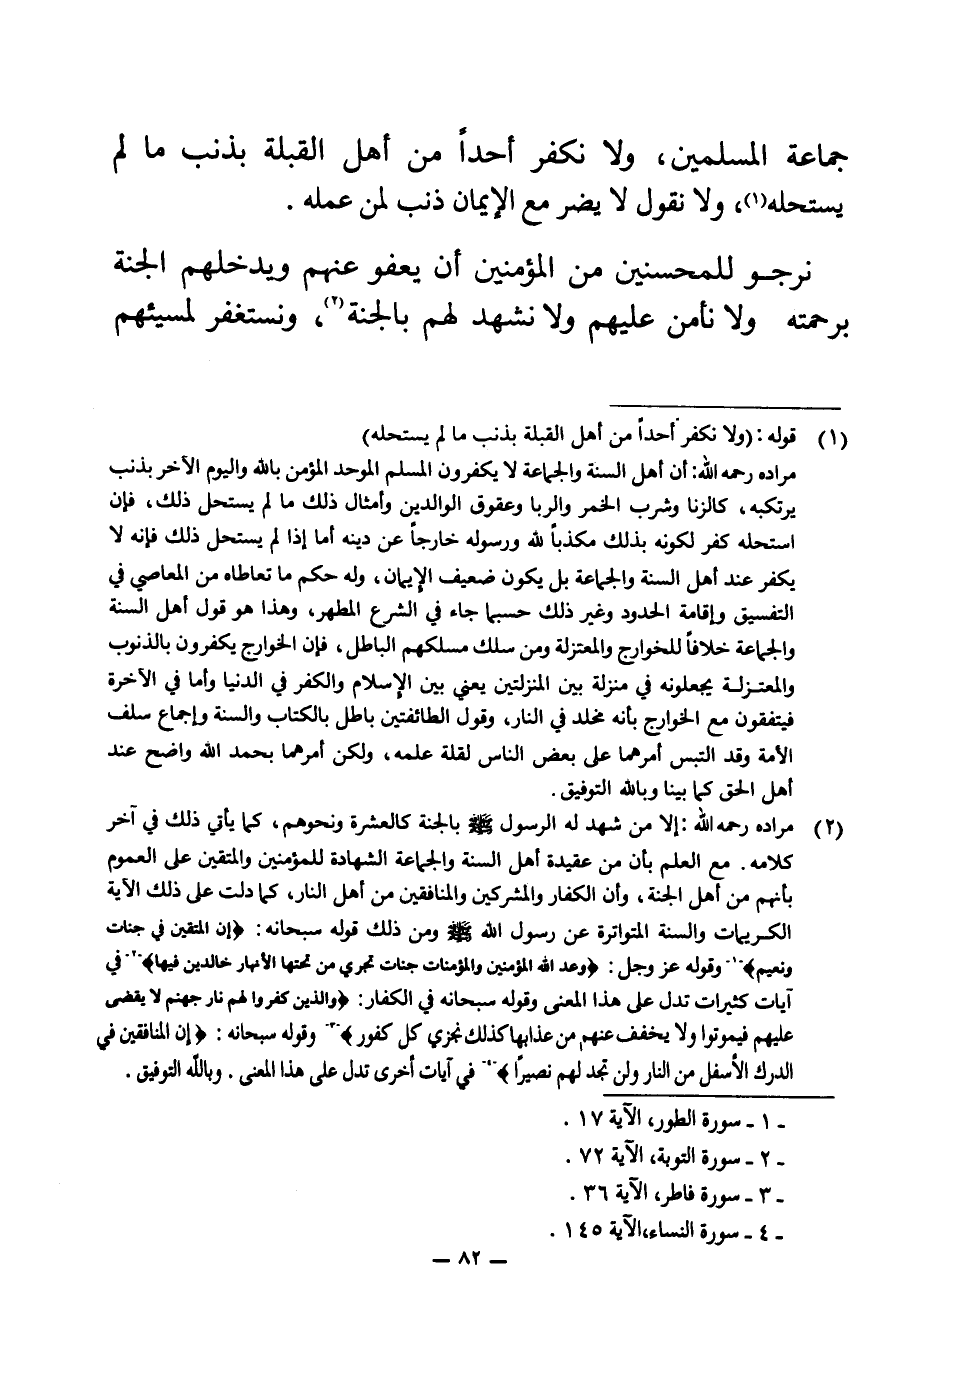 جماعة المسلمين، ولا نكفر أحداً من أهل القبلة بذنب ما لم
يستحله(١)، ولا نقول لا يضر مع الإيمان ذنب لمن عمله .
نرجـو للمحسنين من المؤمنين أن يعفو عنهم ويدخلهم الجنة
برحمته ولا نأمن عليهم ولا نشهد لهم بالجنة(٢)، ونستغفر لمسيئهم
(١) قوله : (ولا نكفر أحداً من أهل القبلة بذنب ما لم يستحله)
مراده رحمه الله: أن أهل السنة والجماعة لا يكفرون المسلم الموحد المؤمن بالله واليوم الآخر بذنب
يرتكبه، كالزنا وشرب الخمر والربا وعقوق الوالدين وأمثال ذلك ما لم يستحل ذلك، فإن
استحله كفر لكونه بذلك مكذباً لله ورسوله خارجاً عن دينه أما إذا لم يستحل ذلك فإنه لا
يكفر عند أهل السنة والجماعة بل يكون ضعيف الإيمان، وله حكم ما تعاطاه من المعاصي في
التفسيق وإقامة الحدود وغير ذلك حسبما جاء في الشرع المطهر، وهذا هو قول أهل السنة
والجماعة خلافاً للخوارج والمعتزلة ومن سلك مسلكهم الباطل، فإن الخوارج يكفرون بالذنوب
والمعتـزلـة يجعلونه في منزلة بين المنزلتين يعني بين الإسلام والكفر في الدنيا وأما في الآخرة
فيتفقون مع الخوارج بأنه مخلد في النار، وقول الطائفتين باطل بالكتاب والسنة وإجماع سلف
الأمة وقد التبس أمرهما على بعض الناس لقلة علمه، ولكن أمرهما بحمد الله واضح عند
أهل الحق كما بينا وبالله التوفيق .
(٢) مراده رحمه الله : إلا من شهد له الرسول ﷺ بالجنة كالعشرة ونحوهم، كما يأتي ذلك في آخر
كلامه . مع العلم بأن من عقيدة أهل السنة والجماعة الشهادة للمؤمنين والمتقين على العموم
بأنهم من أهل الجنة، وأن الكفار والمشركين والمنافقين من أهل النار، كما دلت على ذلك الآية
الكـريمات والسنة المتواترة عن رسول الله ﷺ ومن ذلك قوله سبحانه : ﴿إن المتقين في جنات
ونعيم﴾-١- وقوله عز وجل : ﴿وعد الله المؤمنين والمؤمنات جنات تجري من تحتها الأنهار خالدين فيها﴾-٢- في
آيات كثيرات تدل على هذا المعنى وقوله سبحانه في الكفار: ﴿والذين كفروا لهم نار جهنم لا يقضى
عليهم فيموتوا ولا يخفف عنهم من عذابها كذلك نجزي كل كفور﴾-٣- وقوله سبحانه : ﴿إن المنافقين في
الدرك الأسفل من النار ولن تجد لهم نصيرًا﴾-٤- في آيات أخرى تدل على هذا المعنى . وباللّه التوفيق .
ـ ١ ـ سورة الطور، الآية ١٧ .
ـ ٢ ـ سورة التوبة، الآية ٧٢ .
ـ ٣ ـ سورة فاطر، الآية ٣٦ .
ـ ٤ ـ سورة النساء، الآية ١٤٥ .
— ٨٢ —